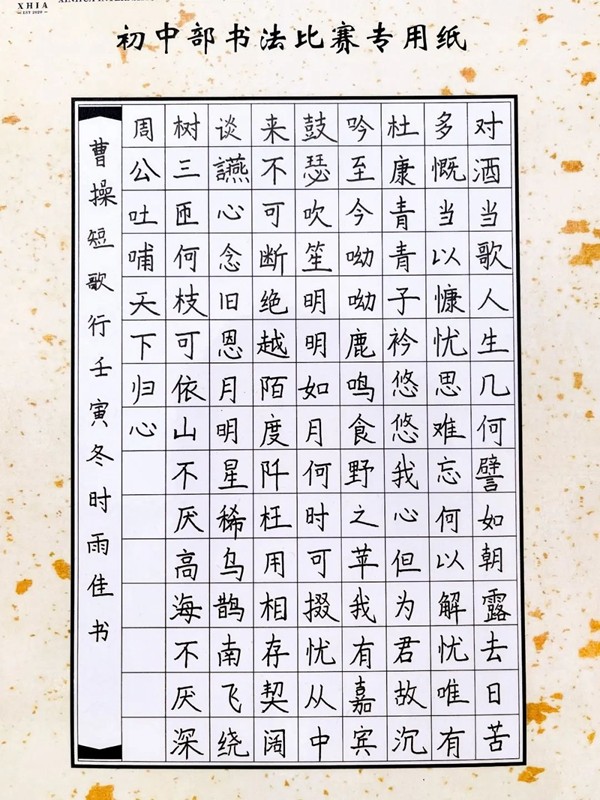 XHIA
初中部书法比赛专用纸
对酒当歌人生几何譬如朝露去日苦
多慨当以慷忧思难忘何以解忧唯有
杜康青青子衿悠悠我心但为君故沉
吟至今呦呦鹿鸣食野之苹我有嘉宾
鼓瑟吹笙明明如月何时可掇忧从中
来不可断绝越陌度阡枉用相存契阔
谈讌心念旧恩月明星稀鸟鹊南飞绕
树三匝何枝可依山不厌高海不厌深
周公吐哺天下归心
曹操短歌行壬寅冬时雨佳书